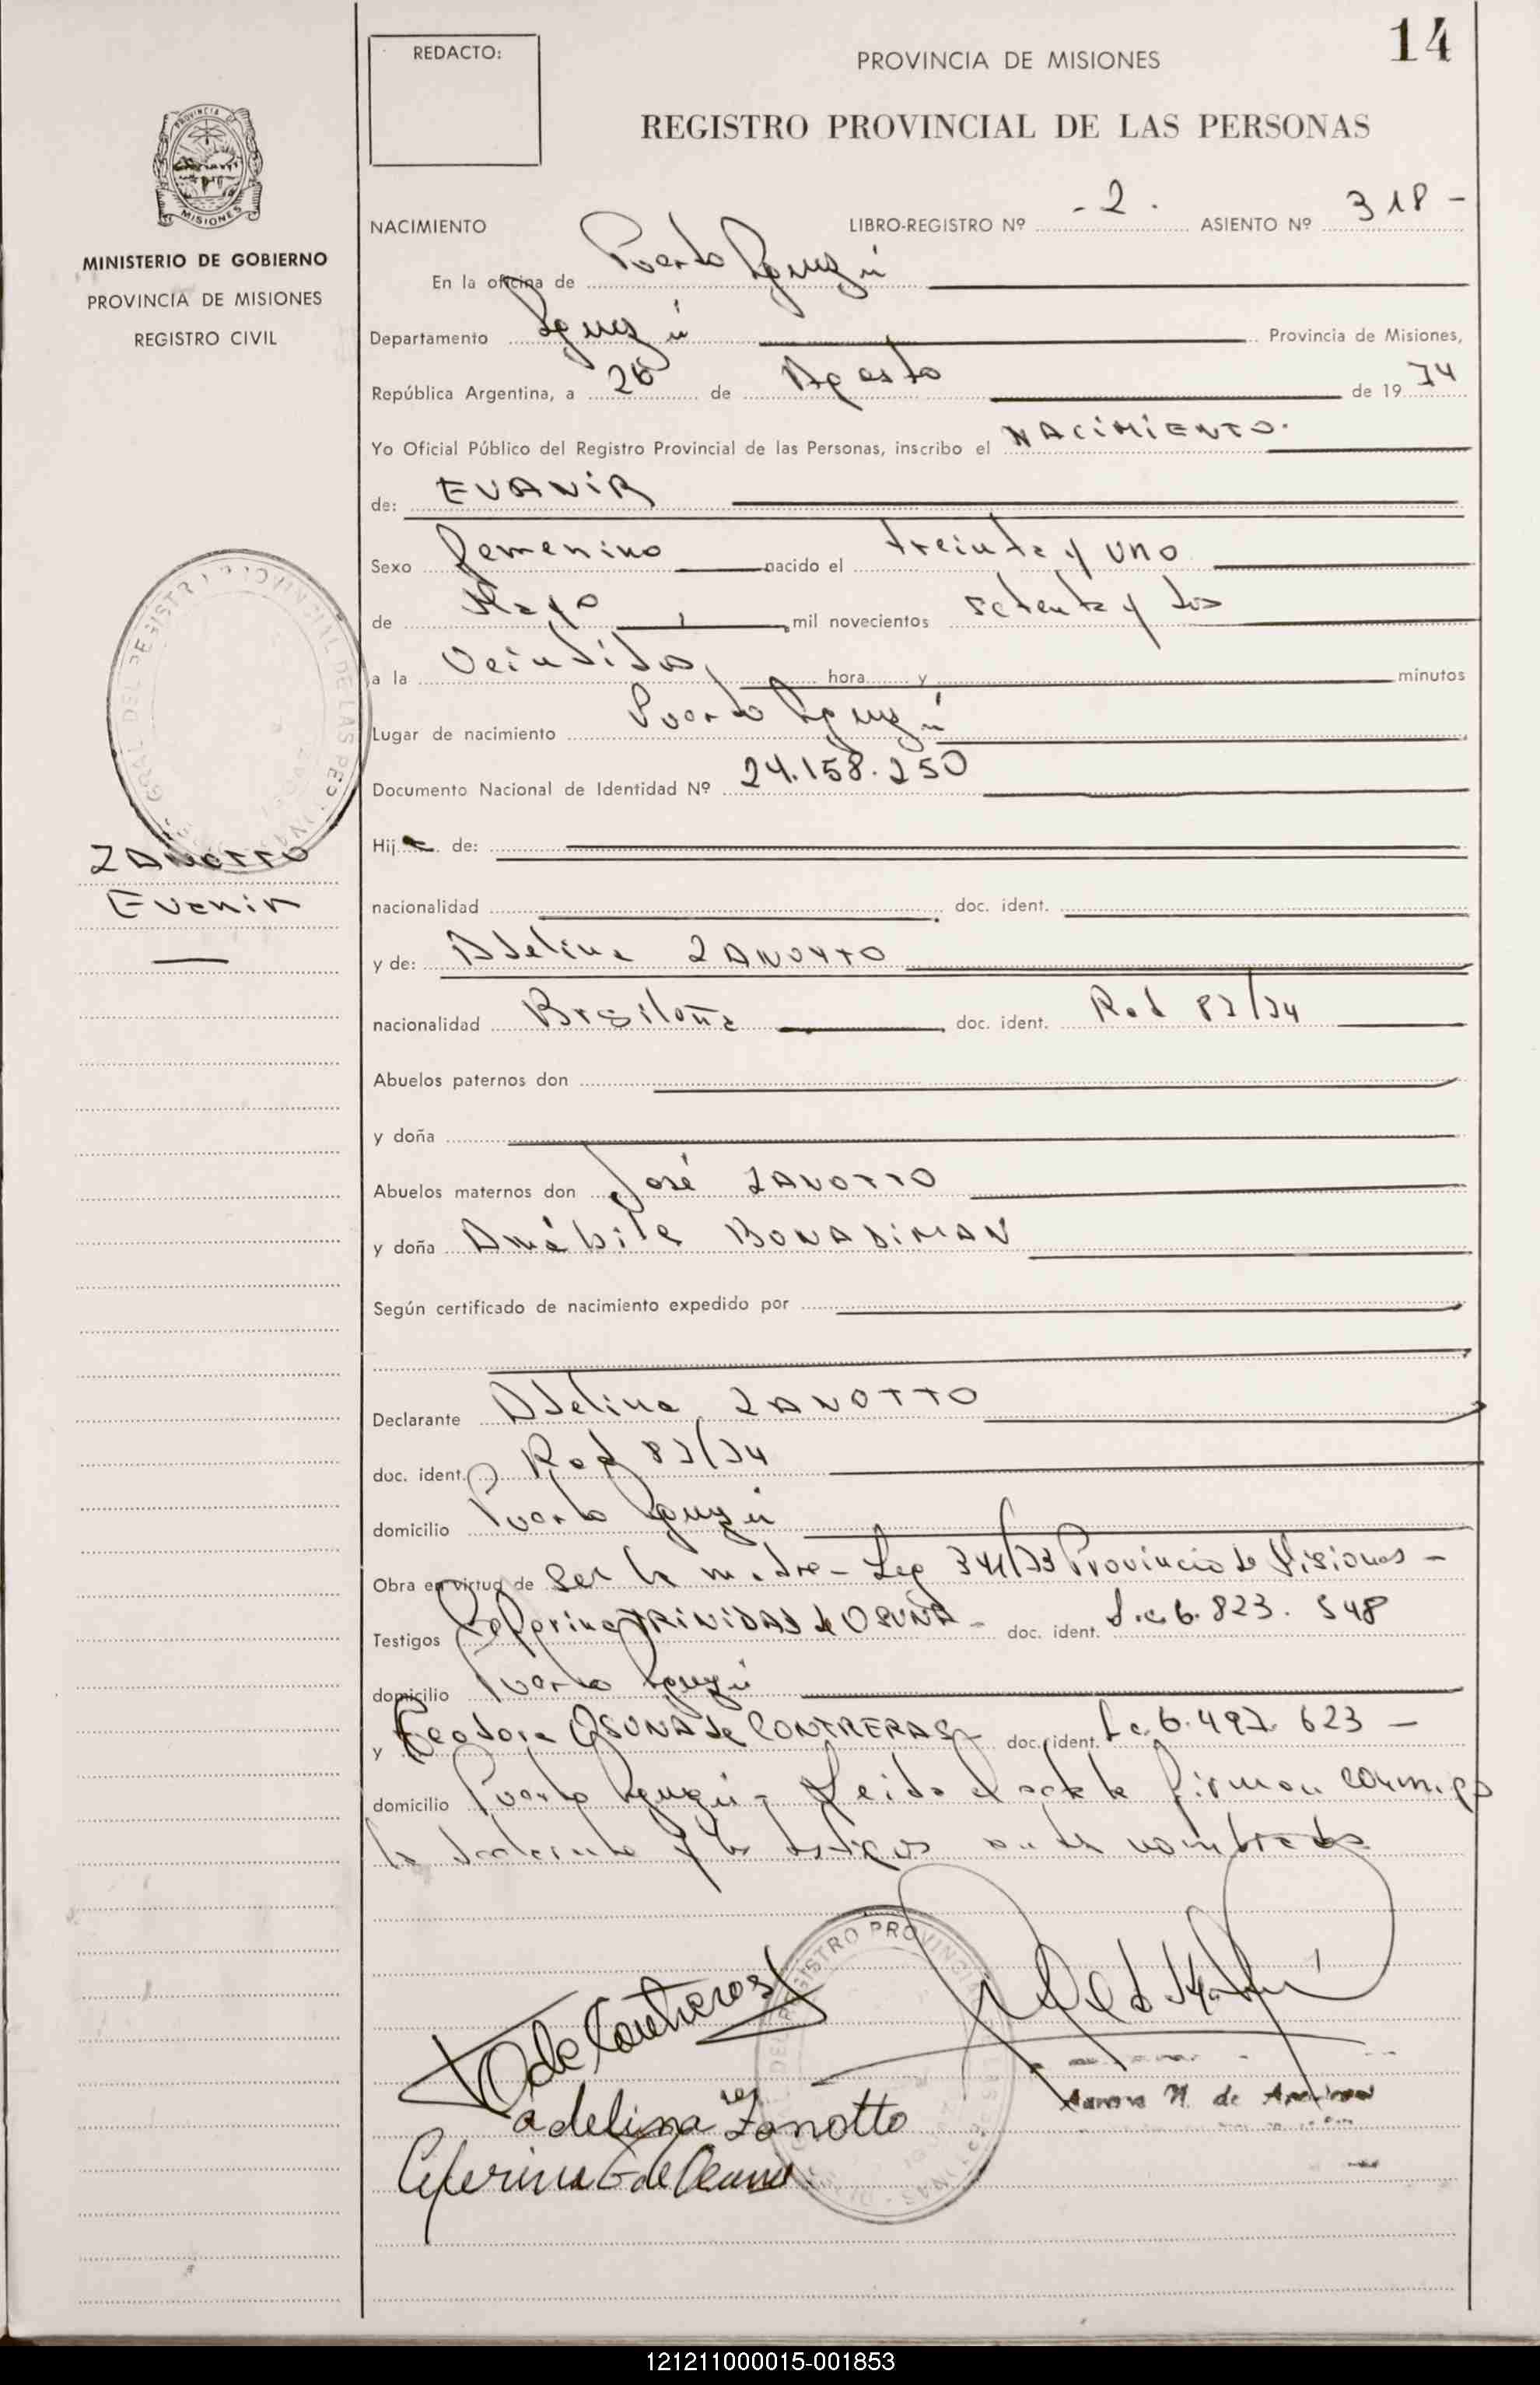 14
REDACTO:
PROVINCIA DE MISIONES
REGISTRO PROVINCIAL DE LAS PERSONAS
PROVINCIA
MISIONES
MINISTERIO DE GOBIERNO
PROVINCIA DE MISIONES
REGISTRO CIVIL
NACIMIENTO LIBRO-REGISTRO Nº - 2 . ASIENTO Nº 318 -
En la oficina de Puerto Iguazú
Departamento Iguazú Provincia de Misiones,
República Argentina, a 26 de Agosto de 1974
Yo Oficial Público del Registro Provincial de las Personas, inscribo el NACIMIENTO.
de: EVANIR
Sexo Femenino nacido el treinta y uno
de Mayo mil novecientos setenta y dos
a la Veintidos, hora y minutos
Lugar de nacimiento Puerto Iguazú
Documento Nacional de Identidad Nº 24.158.250
Hija de:
ZANOTTO
Evanir
nacionalidad doc. ident.
y de: Adelina ZANOTTO
nacionalidad Brasileña doc. ident. Rad 87/74
Abuelos paternos don
y doña
Abuelos maternos don José ZANOTTO
y doña Amábile BONADIMAN
Según certificado de nacimiento expedido por
Declarante Adelina ZANOTTO
doc. ident. Rad 87/74
domicilio Puerto Iguazú
Obra en virtud de ser la madre - Ley 341/73 Provincia de Misiones -
Testigos Ceferina TRINIDAD de OSUNA - doc. ident. L.c. 6.823.548
domicilio Puerto Iguazú
y Teodora OSUNA de CONTRERAS - doc. ident. Lc. 6.497.623 -
domicilio Puerto Iguazú - Leida el acta la firman conmigo
la declarante y los testigos antes nombrados
REGISTRO PROVINCIAL
TO de Contreras
adelina Zanotto
Aurora N. de
Ceferina T de Osuna
121211000015-001853